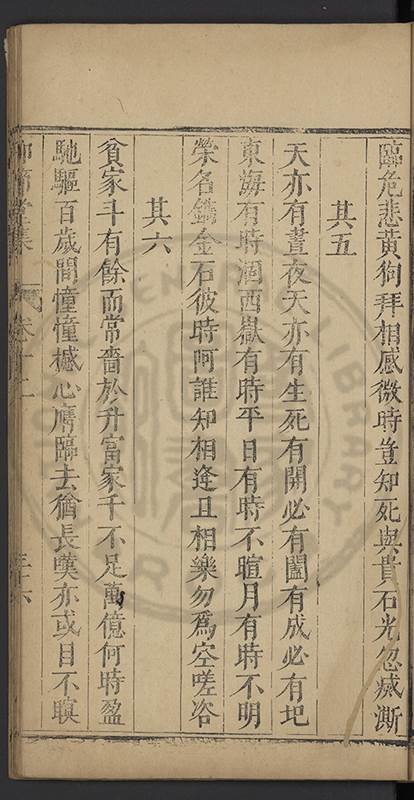 臨危悲黃狗拜相感微時豈知死與貴石光忽㓕澌
其五
天亦有晝夜天亦有生死有開必有闔有成必有圯
東海有時涸西嶽有時平日有時不暄月有時不明
榮名鐫金石彼時阿誰知相逢且相樂勿爲空嗟咨
其六
貧家斗有餘而常嗇於升富家千不足萬億何時盈
馳驅百歲間憧憧撼心膺臨去猶長嘆亦或目不瞑
集 卷十二 三十六